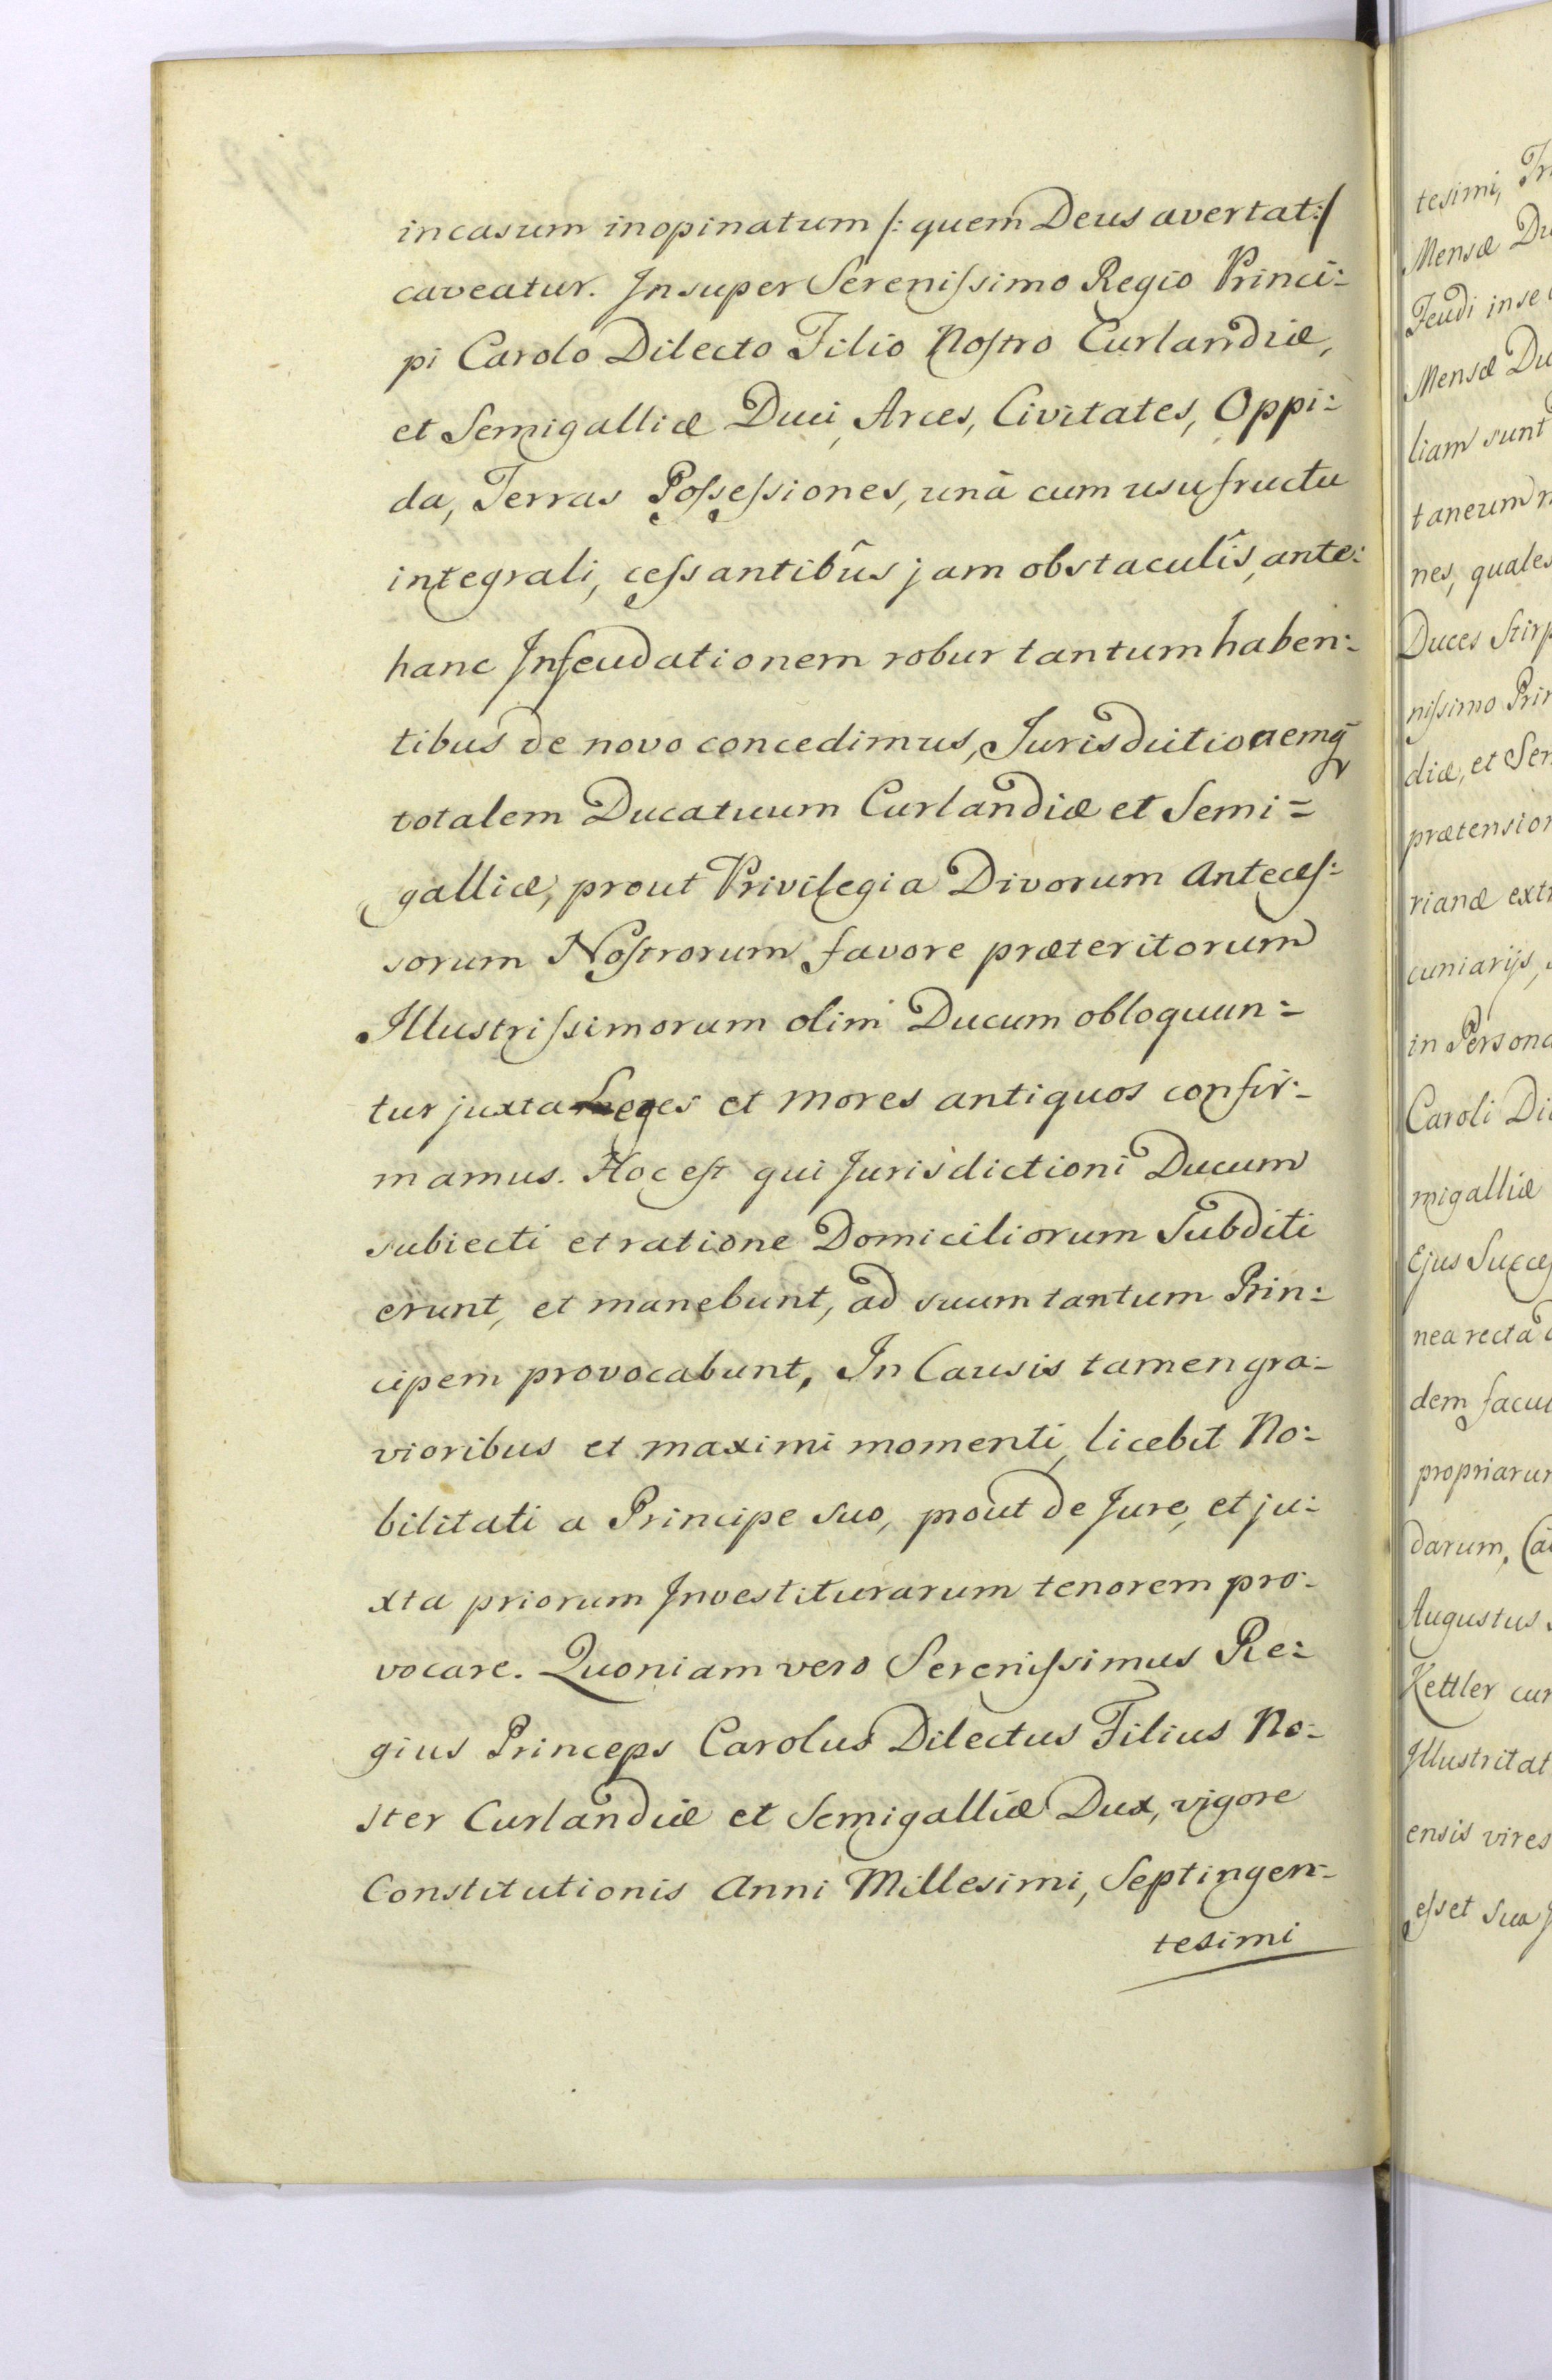 incasum inopinatum /: quem Deus avertat :/
caveatur. Insuper Sereniſsimo Regio Princi:
pi Carolo Dilecto Filio Noſtro Curlandiæ,
et Semigalliæ Duci, Arces, Civitates, Oppi:
da, Terras Poſseſsiones, unà cum usufructu
integrali, ceſsantibûs jam obstaculîs, ante:
hanc Infeudationem robur tantum haben:
tibus de novo concedimus, Jurisdictionemq̃
totalem Ducatuum Curlandiæ et Semi=
galliæ, prout Privilegia Divorum Anteceſ:
sorum Noſtrorum favore præteritorum
Illustriſsimorum olim Ducum obloquun=
tur juxta Leges et mores antiquos confir:
mamus. Hoc eſt qui Jurisdictioni Ducum
subiecti et ratione Domiciliorum Subditi
erunt, et manebunt, ad suum tantum Prin:
cipem provocabunt, In Causis tamen gra:
vioribus et maximi momenti, licebit No:
bilitati a Principe suo, prout de Jure, et ju:
xta priorum Investiturarum tenorem pro:
vocare. Quoniam vero Sereniſsimus Re:
gius Princeps Carolus Dilectus Filius No:
ster Curlandiæ et Semigalliæ Dux, vigore
Constitutionis Anni Millesimi, Septingen:
tesimi
tesimi,
Mensæ
Feudi
Mensæ
liam sunt
taneum
nes, quales
Duces
niſsimo
diæ, et
rianæ
cuniarijs,
in
Caroli
migalliæ
Ejus
nea recta
dem
darum,
Augustus
Kettler
ensis vires
eſset sua